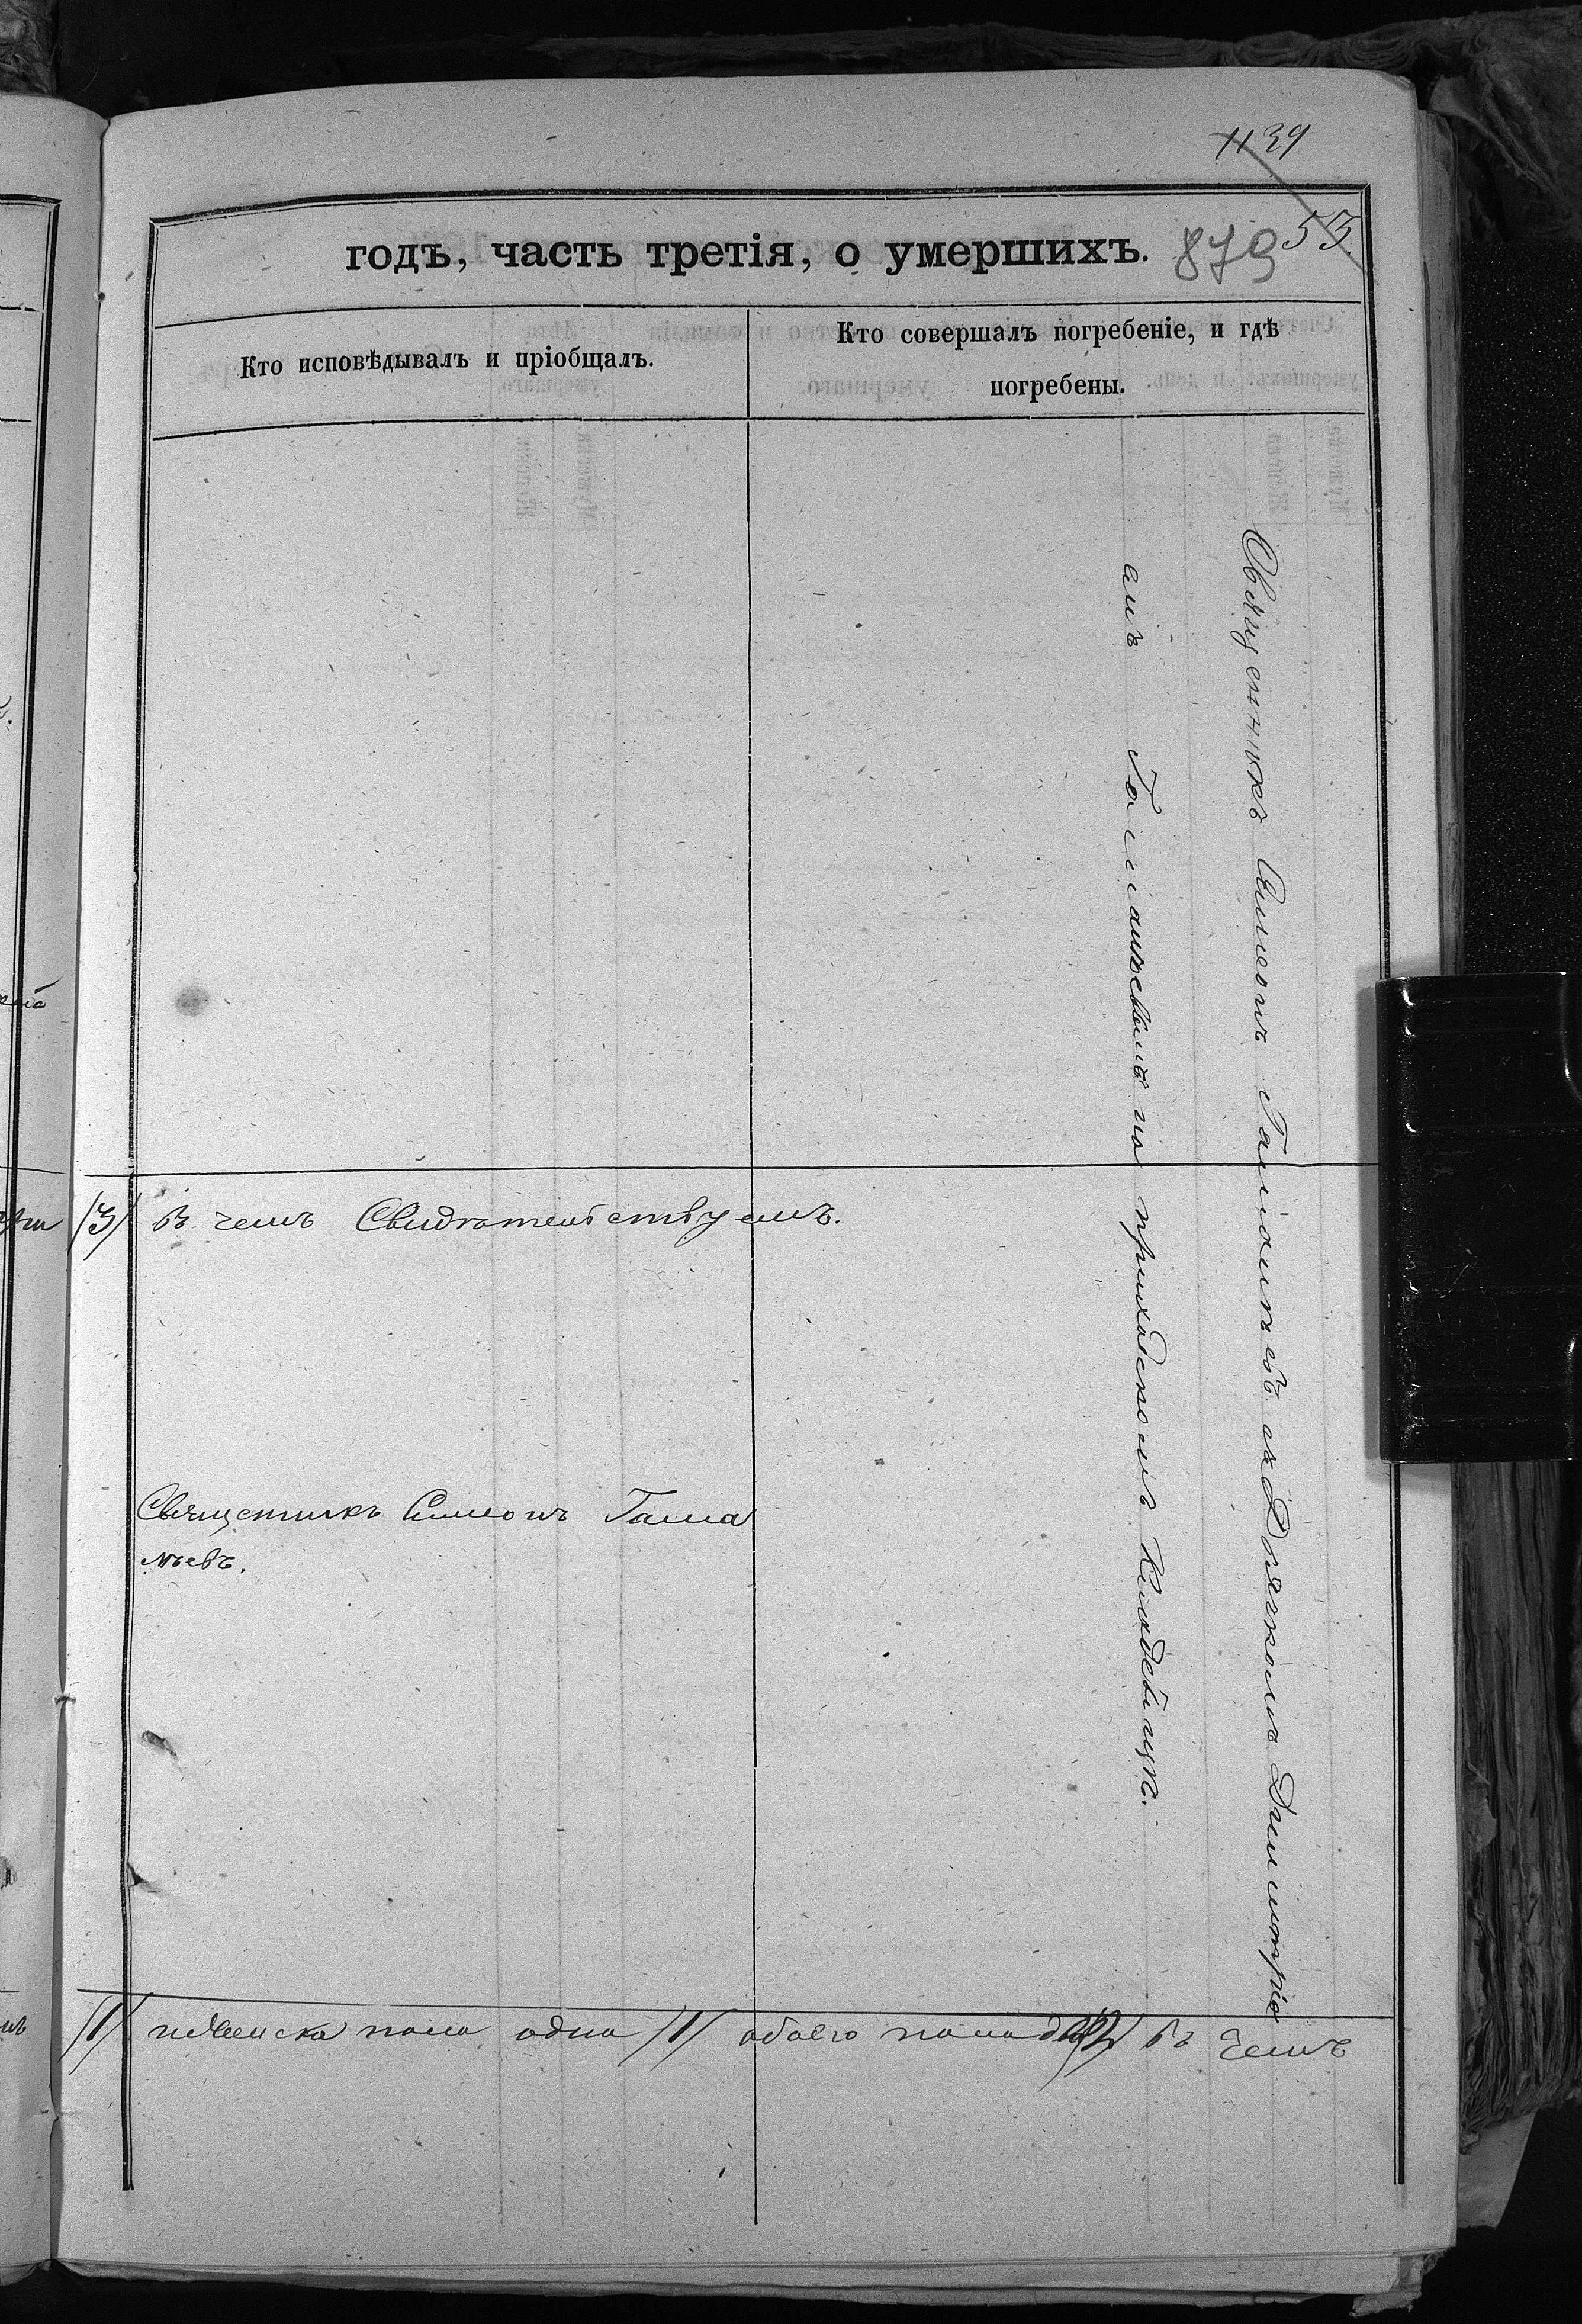 1139
годъ, часть третія, о умершихъ.
879
53
Кто исповѣдывалъ и пріобщалъ.
Кто совершалъ погребеніе, и гдѣ
погребены.
Священникъ Симеонъ Гамалѣевъ съ Дьячкомъ Димитріе
емъ Гамалѣевымъ на приходскомъ Кладбищѣ.
/3/ въ чемъ Свидѣтельствуемъ.
Священникъ Симеонъ Гама
лѣевъ.
/1/ и женска пола одна /1/ обоего пола два /2/ въ чемъ